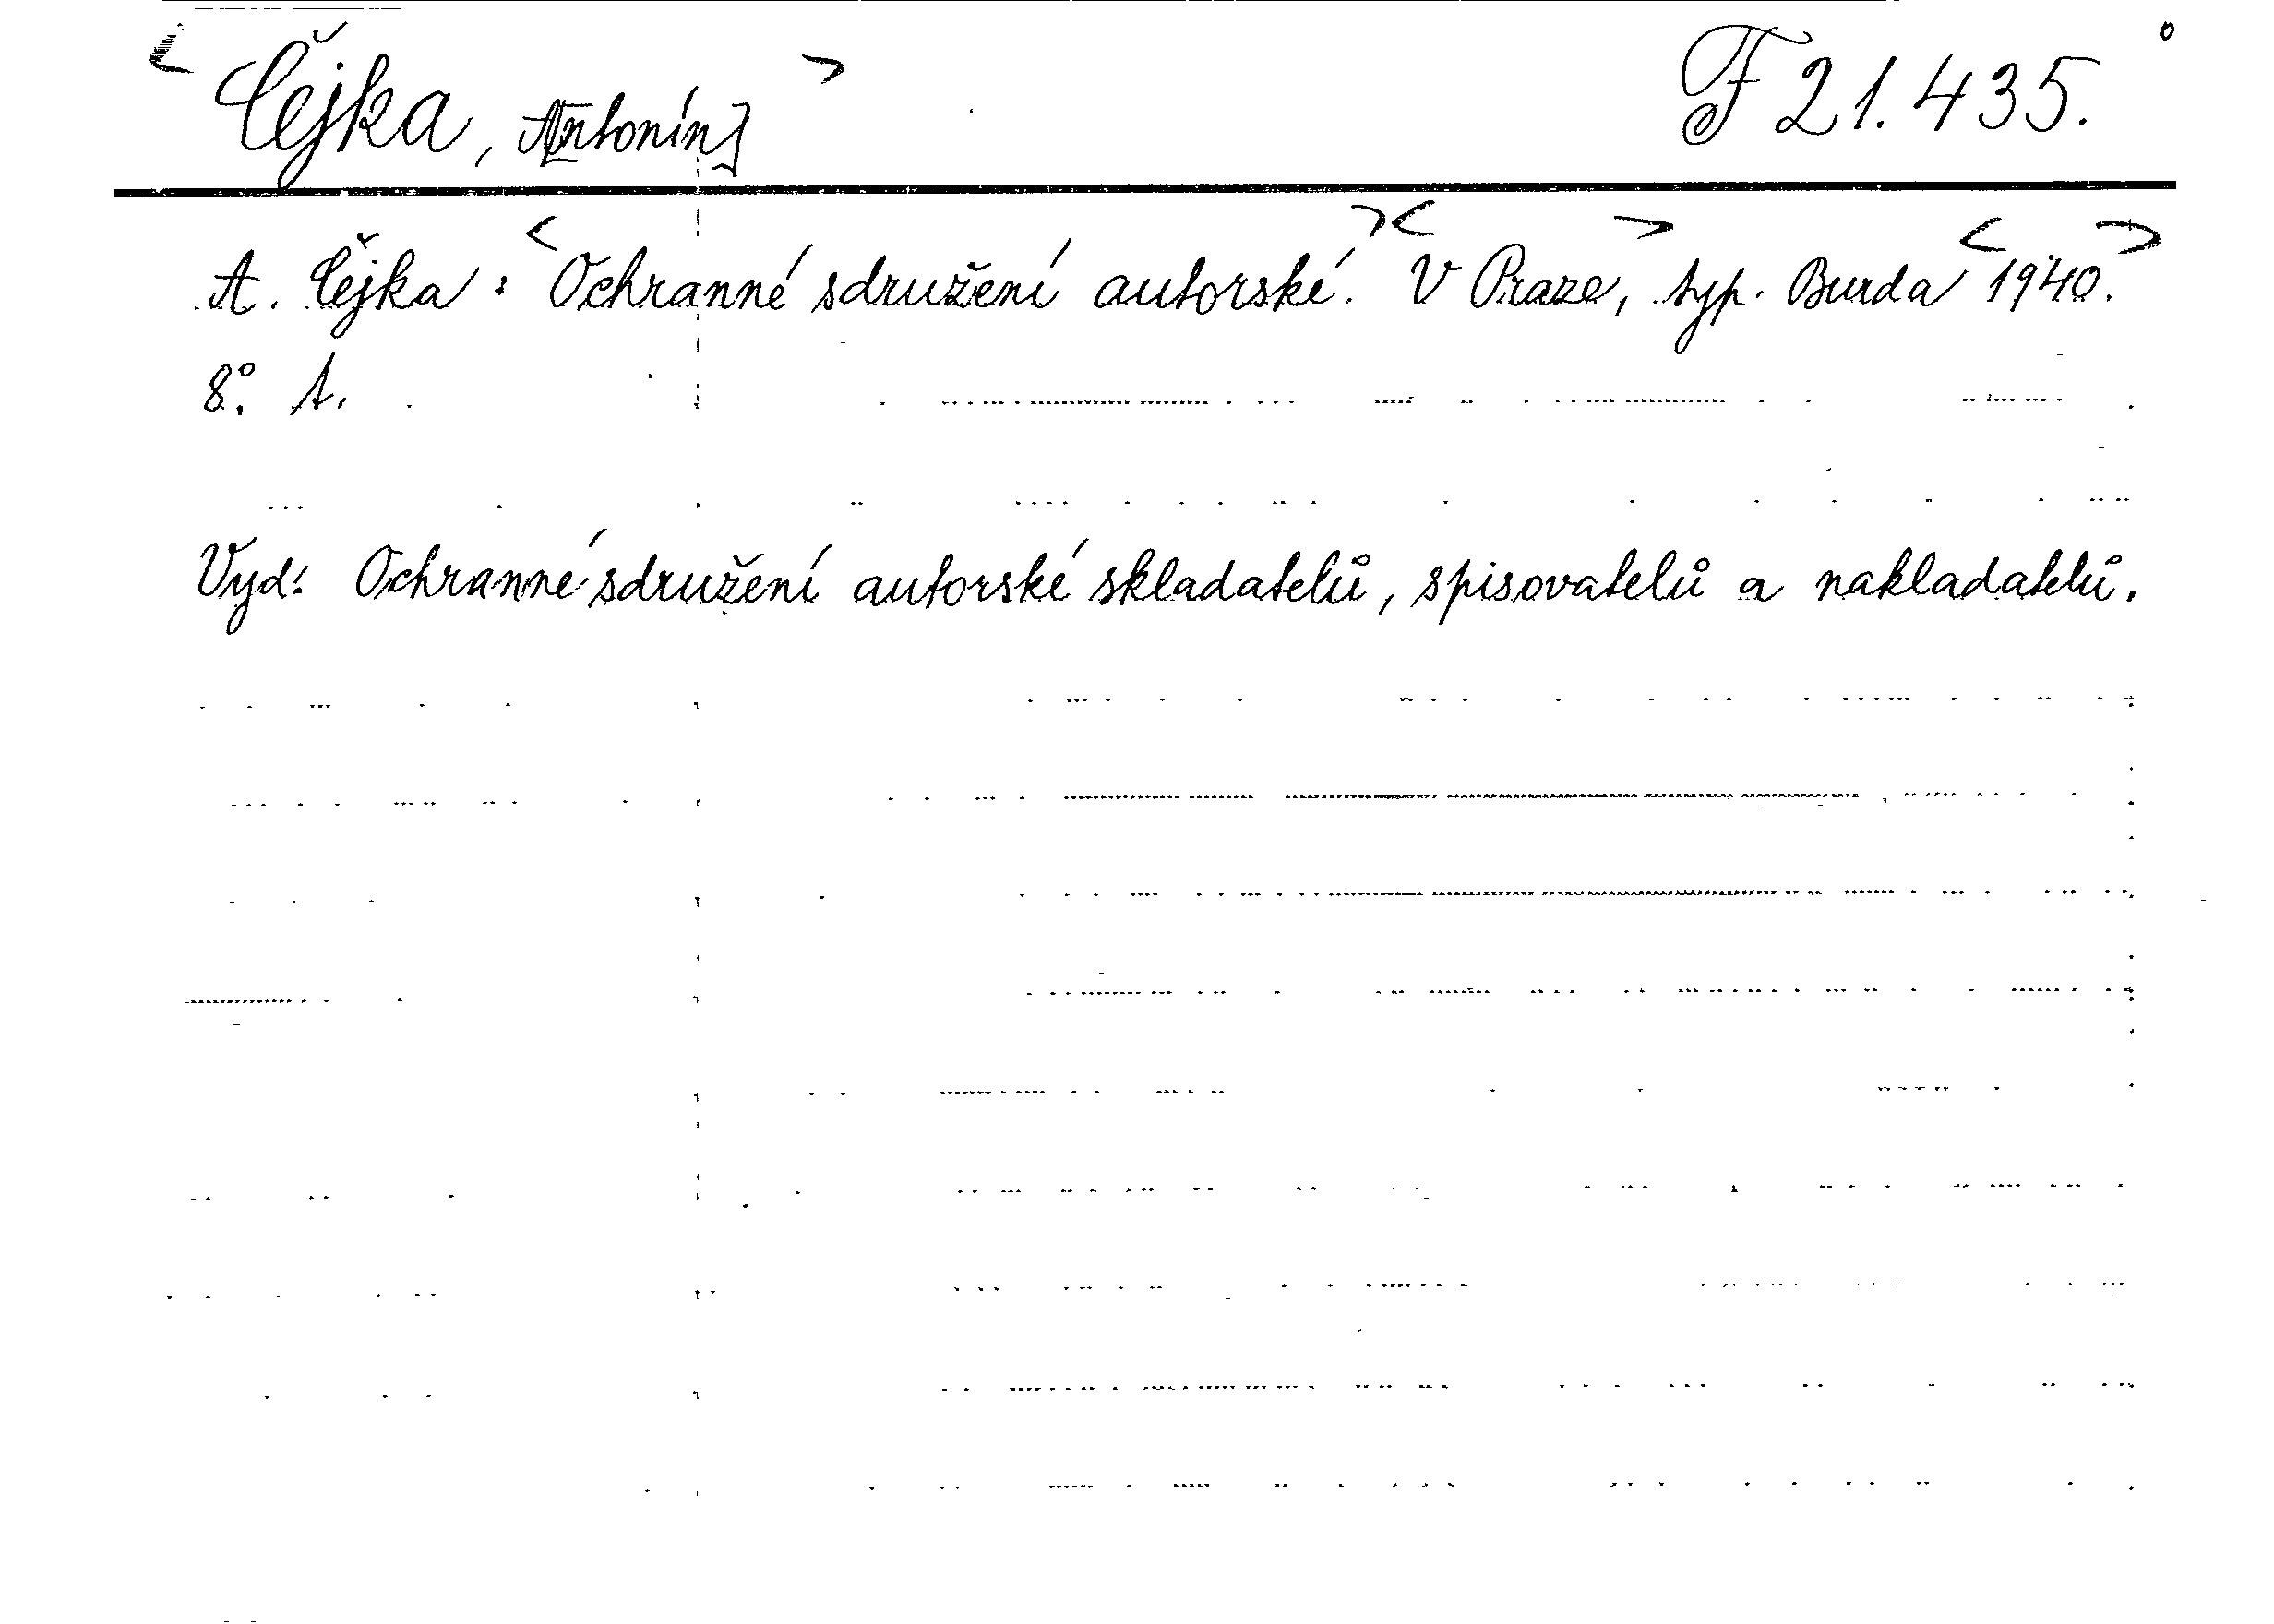 <Čejka, A[ntonín]> F 21.435.
A. Čejka: <Ochranné sdružení autorské.><V Praze,> typ. Burda <1940.>
8°. 1.
Vyd: Ochranné sdružení autorské skladatelů, spisovatelů a nakladatelů.